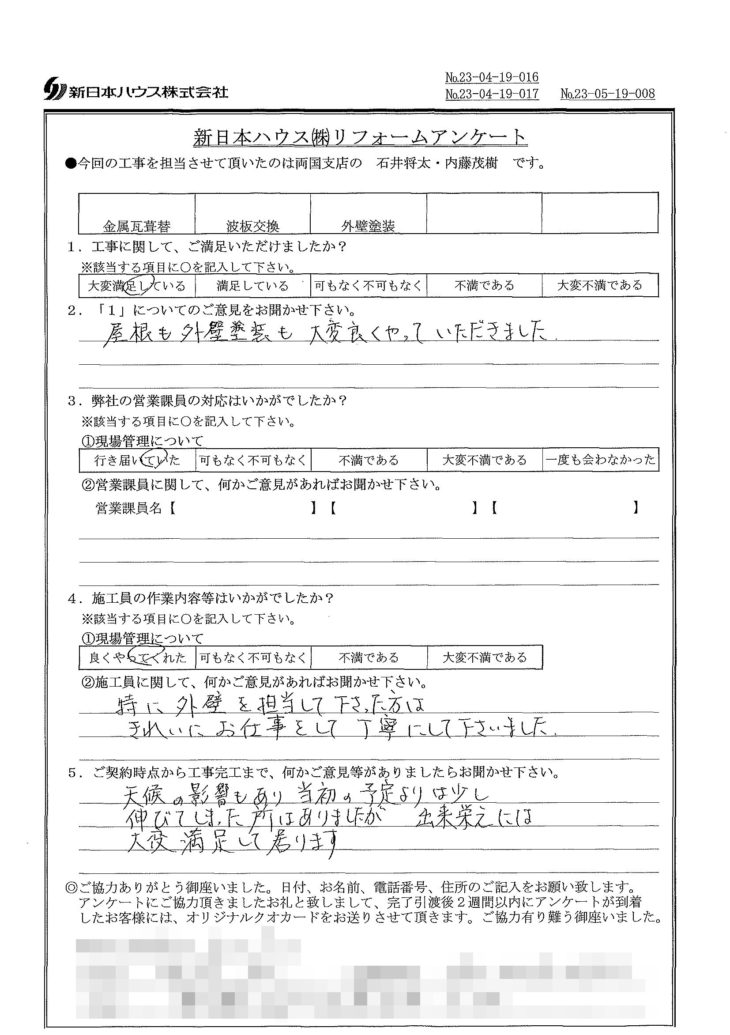 新日本ハウス株式会社
№23-04-19-016
№23-04-19-017 №23-05-19-008
新日本ハウス㈱リフォームアンケート
●今回の工事を担当させて頂いたのは両国支店の 石井将太・内藤茂樹 です。
金属瓦葺替 波板交換 外壁塗装
1．工事に関して、ご満足いただけましたか？
※該当する項目に〇を記入して下さい。
大変満足している 満足している 可もなく不可もなく 不満である 大変不満である
2．「1」についてのご意見をお聞かせ下さい。
屋根も外壁塗装も 大変良くやって いただきました.
3．弊社の営業課員の対応はいかがでしたか？
※該当する項目に〇を記入して下さい。
①現場管理について
行き届いていた 可もなく不可もなく 不満である 大変不満である 一度も会わなかった
②営業課員に関して、何かご意見があればお聞かせ下さい。
営業課員名【 】【 】【 】
4．施工員の作業内容等はいかがでしたか？
※該当する項目に〇を記入して下さい。
①現場管理について
良くやってくれた 可もなく不可もなく 不満である 大変不満である
②施工員に関して、何かご意見があればお聞かせ下さい。
特に 外壁 を担当して下さった方は
きれいに お仕事をして 丁寧にして下さいました.
5．ご契約時点から工事完工まで、何かご意見等がありましたらお聞かせ下さい。
天候の影響もあり 当初の予定よりは少し
伸びてしまった所はありましたが 出来栄えには
大変 満足して居ります
◎ご協力ありがとう御座いました。日付、お名前、電話番号、住所のご記入をお願い致します。
アンケートにご協力頂きましたお礼と致しまして、完了引渡後2週間以内にアンケートが到着
したお客様には、オリジナルクオカードをお送りさせて頂きます。ご協力有り難う御座いました。